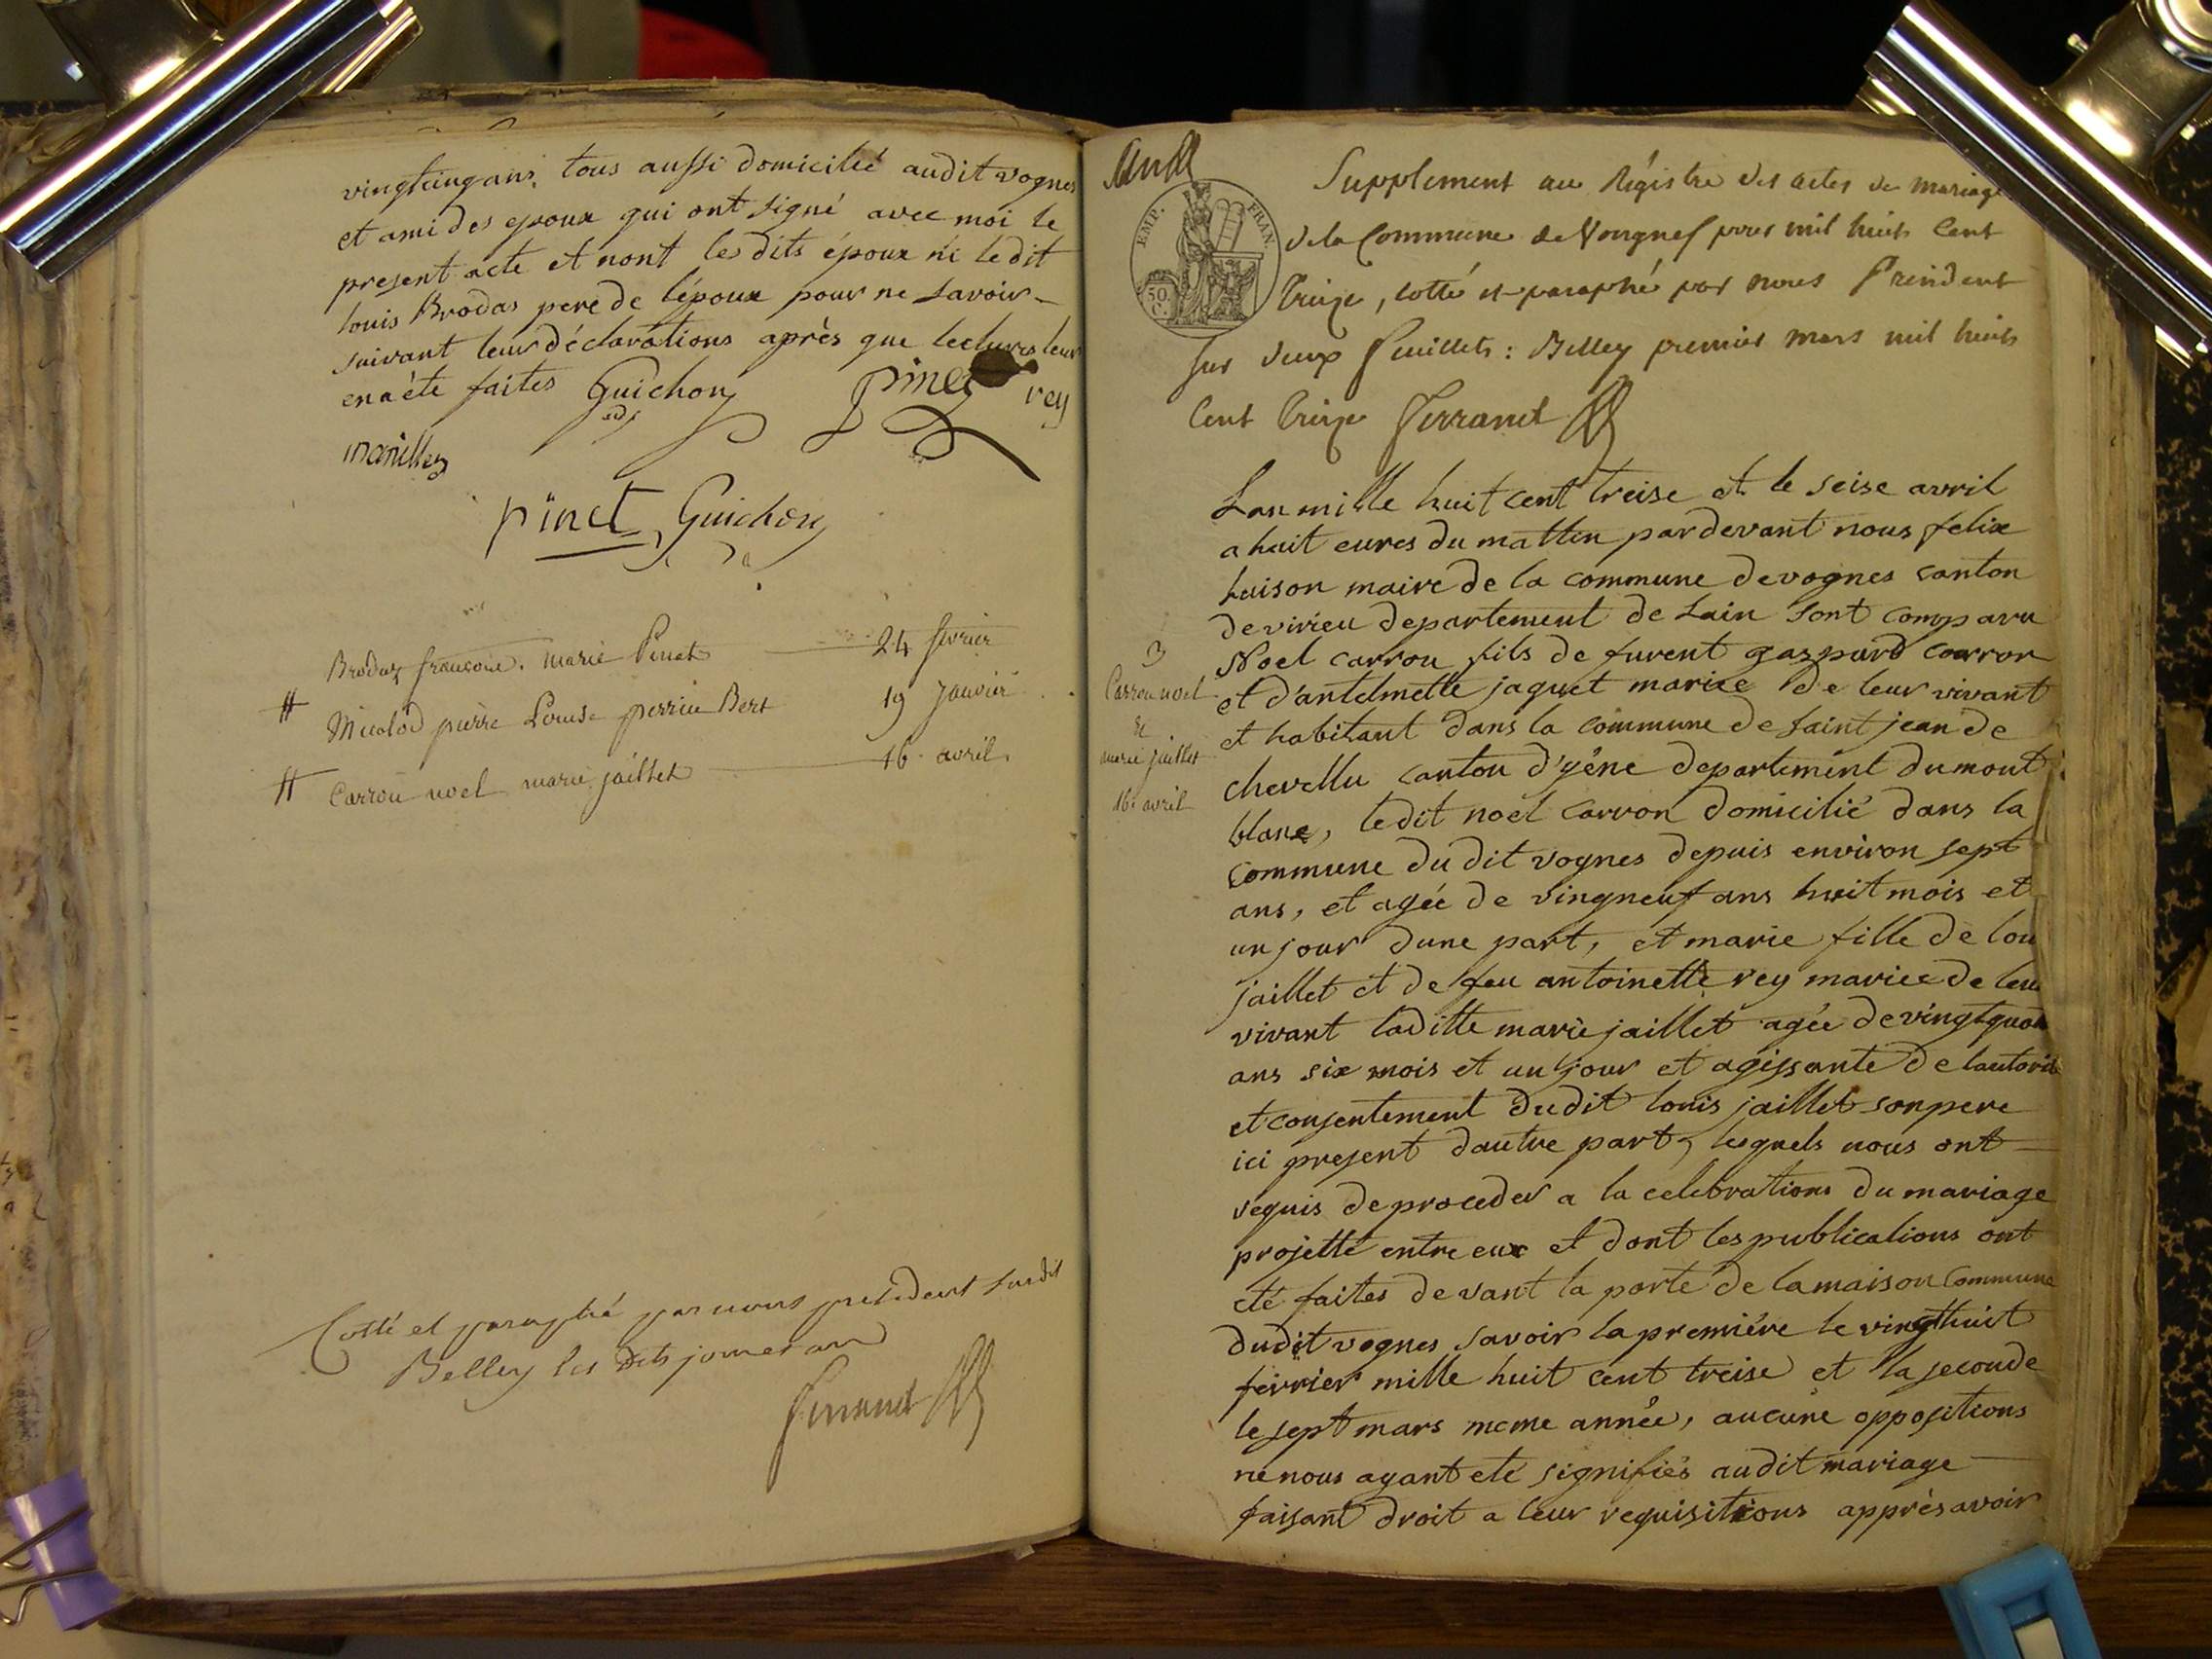 vingtcinq ans, tous aussi domicilié audit vognes
et ami des epoux qui ont signé avec moi le
present acte et nont les dits époux ni ledit
louis Brodas pere de lépoux pour ne savoir
suivant leur déclarations après que lectures leur
en a éte faites Guichon pinet rey
pinet Guichon
Brodaz francois. marie Pinet 24 fevrier
# Micolod pierre Louise perrine Bert 19 Janvier
# Carrou noel marie jaillet 16 avril.
Cotté et paraphé par nous president susdit
Belley les dits jour et an
Ferrand
EMP. FRAN.
50. C.
Supplement au Régistre des actes de mariage
de la Commune de Vongnes pour mil huit Cent
treize, cotté et paraphé par nous President
sur deux feuillets : Belley premier mars mil huit
Cent treize Ferrand
3
Carrou noel
&
marie jaillet
16 avril
Lan mille huit cent treise et le seise avril
a huit eures du mattin pardevant nous felix
huison maire de la commune de vognes canton
de virieu departement de Lain sont comparu
Noel carron fils de furent gaspard carron
et d'antelmette jaquet mariee de leur vivant
et habitant dans la commune de saint jean de
chevellu canton d'yêne departement du mont
blanc, ledit noel carron domicilié dans la
commune du dit vognes depuis environ sept
ans, et agée de vingneuf ans huit mois et
un jour dune part, et marie fille de lou
jaillet et de feu antoinette rey mariee de leu
vivant laditte marie jaillet agée de vingtquat
ans six mois et un jour et agissante de lautorit
et consentement dudit louis jaillet son pere
ici present dautre part, lesquels nous ont
requis de proceder a la celebrations du mariage
projetté entre eux et dont les publications ont
eté faites devant la porte de la maison Commune
dudit vognes savoir la premiére le vingthuit
fevrier mille huit cent treise et la seconde
le sept mars meme année, aucune oppositions
ne nous ayant eté signifiés audit mariage
faisant droit a leur requisitions apprès avoir